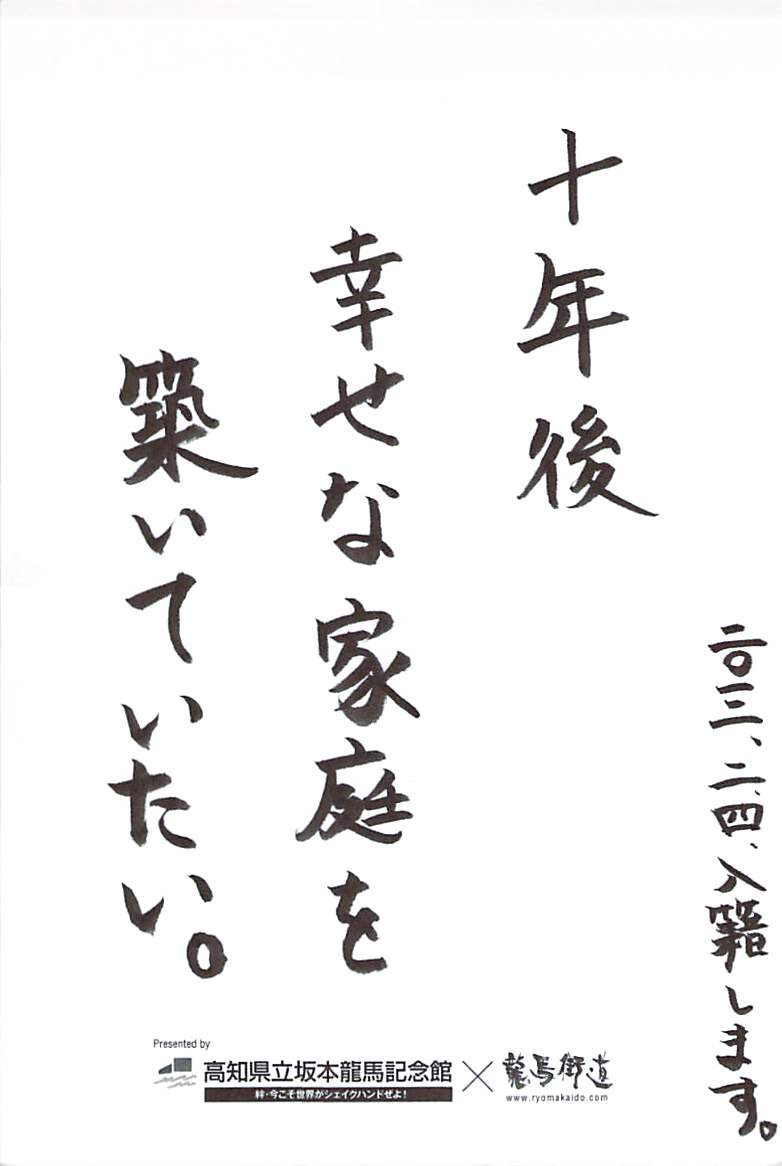 二〇一三、二、四、入籍します。
十年後
幸せな家庭を
築いていたい。
Presented by
高知県立坂本龍馬記念館 × 龍馬街道
絆・今こそ世界がシェイクハンドせよ!
www.ryomakaido.com